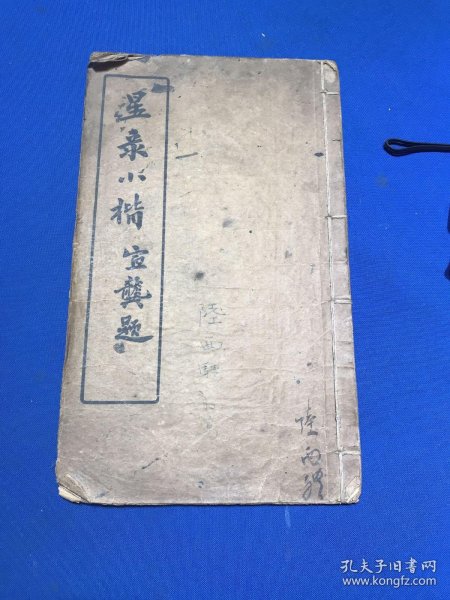 星彔小楷 宣龔題
陸
陸
孔夫子旧书网
www.kongfz.com